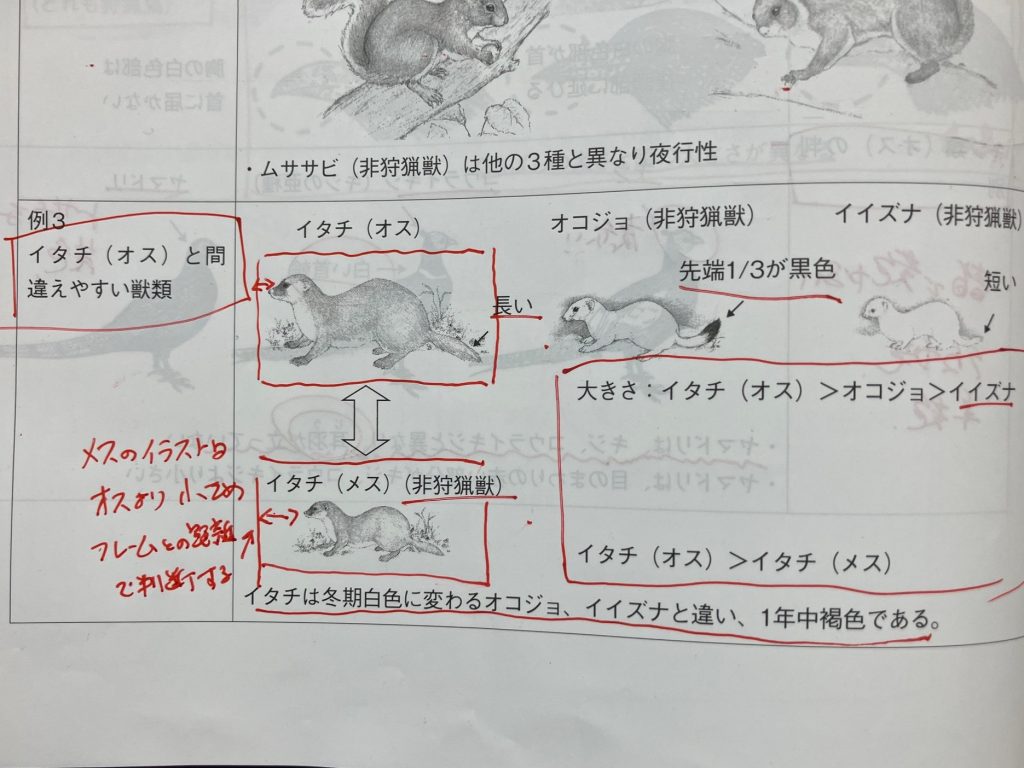 ・ムササビ（非狩猟獣）は他の３種と異なり夜行性
例３
イタチ（オス）と間
違えやすい獣類
イタチ（オス）
長い
オコジョ（非狩猟獣）
先端1/3が黒色
イイズナ（非狩猟獣）
短い
大きさ：イタチ（オス）＞オコジョ＞イイズナ
イタチ（オス）＞イタチ（メス）
イタチ（メス）（非狩猟獣）
メスのイラストは
オスより小さめ
フレームとの距離
で判断する
イタチは冬期白色に変わるオコジョ、イイズナと違い、1年中褐色である。